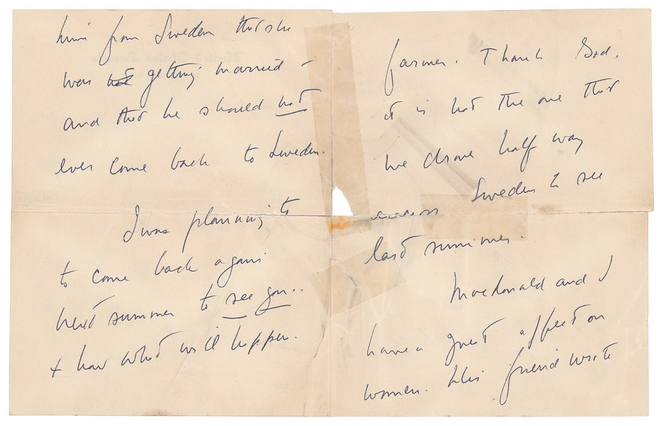 him from Sweden that she
was getting married –
and that he should not
ever come back to Sweden.
I was planning to
to come back again
next summer to see you..
+ now what will happen.
farmer. Thank God,
it is not the one that
we drove half way
across Sweden to see
last summer.
Macdonald and I
have a great affect on
women. His friend wrote